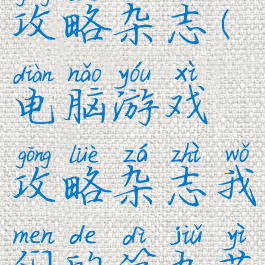 攻略杂志(
diàn nǎo yóu xì
电脑游戏
gōng lüè zá zhì wǒ
攻略杂志我
men de dì jiǔ yì